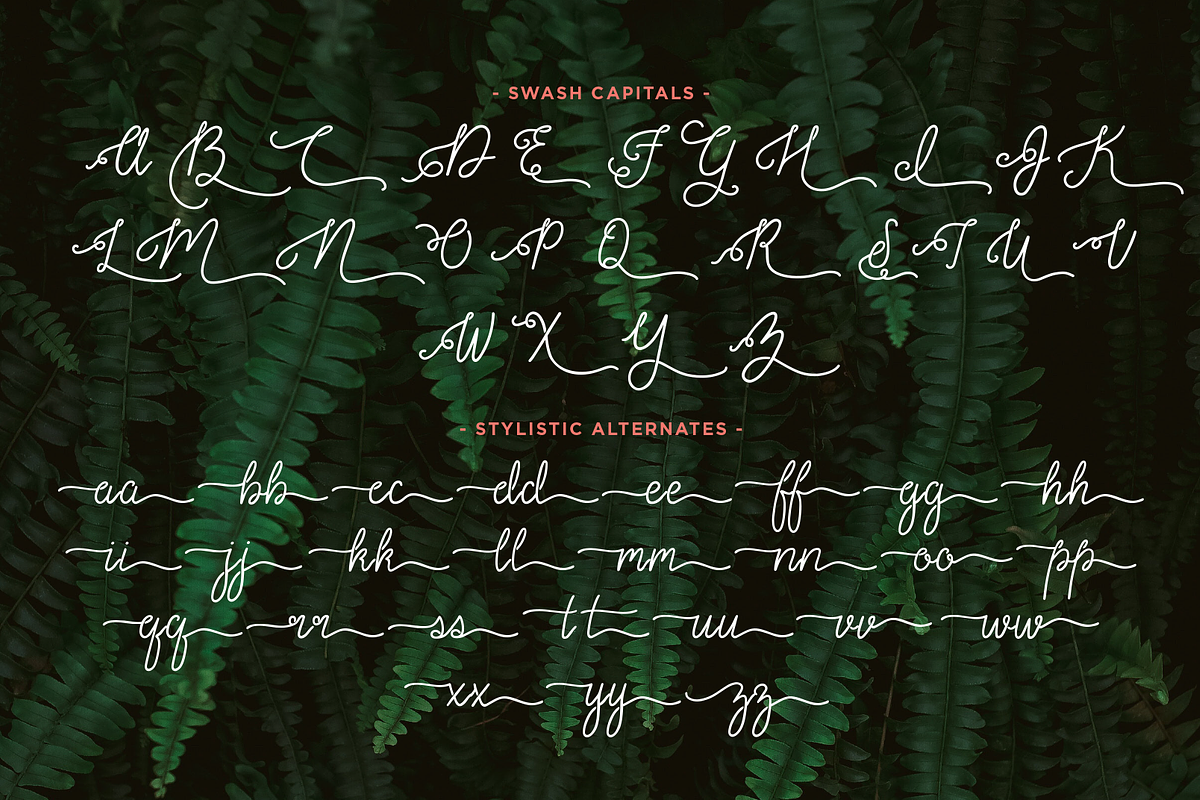 - SWASH CAPITALS -
A B C D E F G H I J K
L M N O P Q R S T U V
W X Y Z
- STYLISTIC ALTERNATES -
aa bb cc dd ee ff gg hh
ii jj kk ll mm nn oo pp
qq rr ss tt uu vv ww
xx yy zz